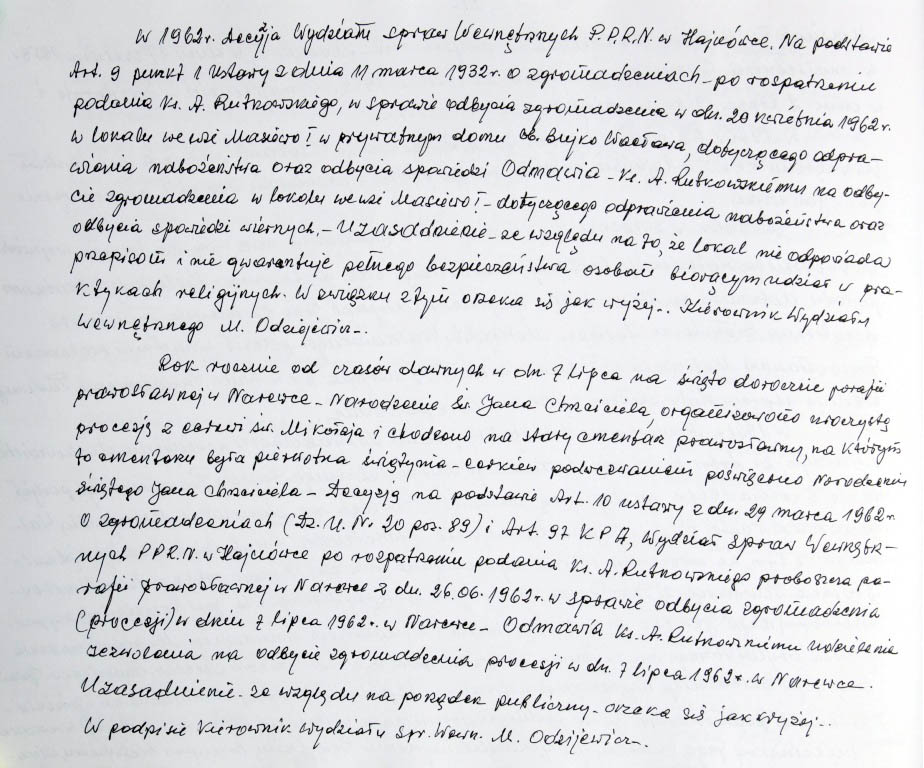 W 1962r. decyzja Wydziału Spraw Wewnętrznych P.P.R.N. w Hajnówce. Na podstawie
Art. 9 punkt 1 ustawy z dnia 11 marca 1932r. o zgromadzeniach – po rozpatrzeniu
podania Ks. A. Rutkowskiego, w sprawie odbycia zgromadzenia w dn. 20 kwietnia 1962r.
w lokalu we wsi Masiewo I w prywatnym domu Ob. Bujko Wacława, dotyczącego odpra-
wienia nabożeństwa oraz odbycia spowiedzi Odmawia – Ks. A. Rutkowskiemu na odby-
cie zgromadzenia w lokalu we wsi Masiewo I – dotyczącego odprawienia nabożeństwa oraz
odbycia spowiedzi wiernych. – Uzasadnienie – ze względu na to, że lokal nie odpowiada
przepisom i nie gwarantuje pełnego bezpieczeństwa osobom biorącym udział w pra-
ktykach religijnych. W związku z tym orzeka się jak wyżej.. Kierownik Wydziału
Wewnętrznego M. Odziejewicz–.
Rok rocznie od czasów dawnych w dn. 7 lipca na święto doroczne parafii
prawosławnej w Narewce – Narodzenie Św. Jana Chrzciciela, organizowano uroczystą
procesją z cerkwi św. Mikołaja i chodzono na stary cmentarz prawosławny, na którym
to cmentarzu była pierwotna świątynia – cerkiew pod wezwaniem poświęcono Narodzeniu
Świętego Jana Chrzciciela – Decyzją na podstawie Art. 10 ustawy z dn. 29 marca 1962r.
o zgromadzeniach (Dz. U. Nr 20 poz. 89) i Art. 97 K P A, Wydział Spraw Wewnętrz-
nych P P R.N. w Hajnówce po rozpatrzeniu podania Ks. A. Rutkowskiego proboszcza pa-
rafii Prawosławnej w Narewce z dn. 26.06.1962r. w sprawie odbycia zgromadzenia
(procesji) w dniu 7 lipca 1962r. w Narewce – Odmawia Ks. A. Rutkowskiemu udzielenia
zezwolenia na odbycie zgromadzenia procesji w dn. 7 lipca 1962r. w Narewce.
Uzasadnienie – ze względu na porządek publiczny – orzeka się jak wyżej..
W podpisie Kierownik Wydziału Spr. Wewn. M. Odzijewicz–.